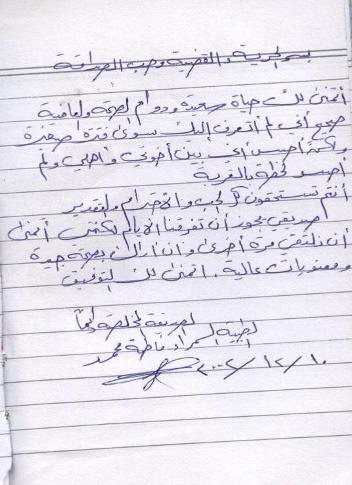 بسم الحرية والقضية وحب الصداقة
أتمنى لك حياة سعيدة ودوام الصحة والعافية
صحيح أني لم أتعرف إليك سوى فترة صغيرة
ولكن أحسست أني بين أخوتي وأهلي ولم
أحس ولو لحظة بالغربة
أنتم تستحقون كل الحب والاحترام والتقدير
صديقي يجوز أن تفرقنا الأيام لكنني أتمنى
أن نلتقي مرة أخرى وأن أراك بصحة جيدة
ومعنويات عالية. أتمنى لك التوفيق
الصديقة المخلصة دائماً
السمراء فاطمة محمد
٢٠٠٢/١٢/١٠